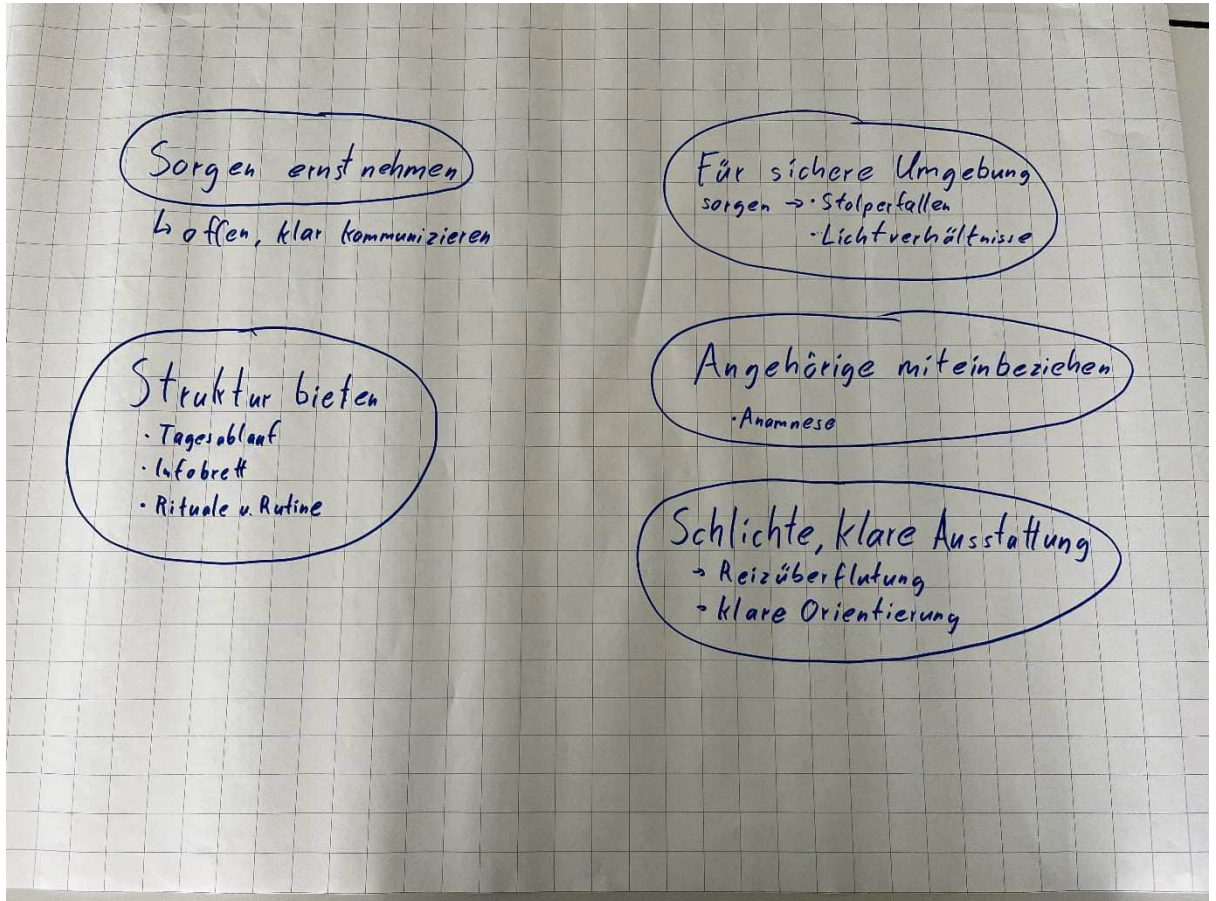 Sorgen ernst nehmen
↳ offen, klar kommunizieren
Struktur bieten
· Tagesablauf
· Infobrett
· Rituale u. Rutine
Für sichere Umgebung
sorgen → · Stolperfallen
· Lichtverhältnisse
Angehörige miteinbeziehen
· Anamnese
Schlichte, klare Ausstattung
→ Reizüberflutung
→ klare Orientierung